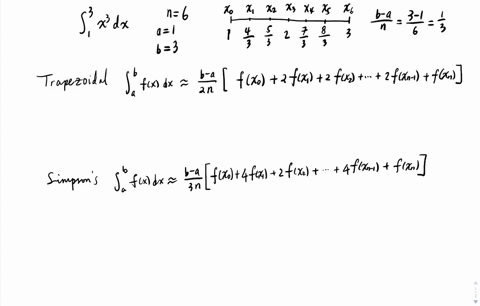 ∫₁³ x³ dx n=6 x₀ x₁ x₂ x₃ x₄ x₅ x₆ b-a/n = 3-1/6 = 1/3
a=1 1 4/3 5/3 2 7/3 8/3 3
b=3
Trapezoidal ∫ₐᵇ f(x) dx ≈ b-a/2n [ f(x₀) + 2f(x₁) + 2f(x₂) + ⋯ + 2f(xₙ₋₁) + f(xₙ) ]
Simpson's ∫ₐᵇ f(x) dx ≈ b-a/3n [ f(x₀) + 4f(x₁) + 2f(x₂) + ⋯ + 4f(xₙ₋₁) + f(xₙ) ]